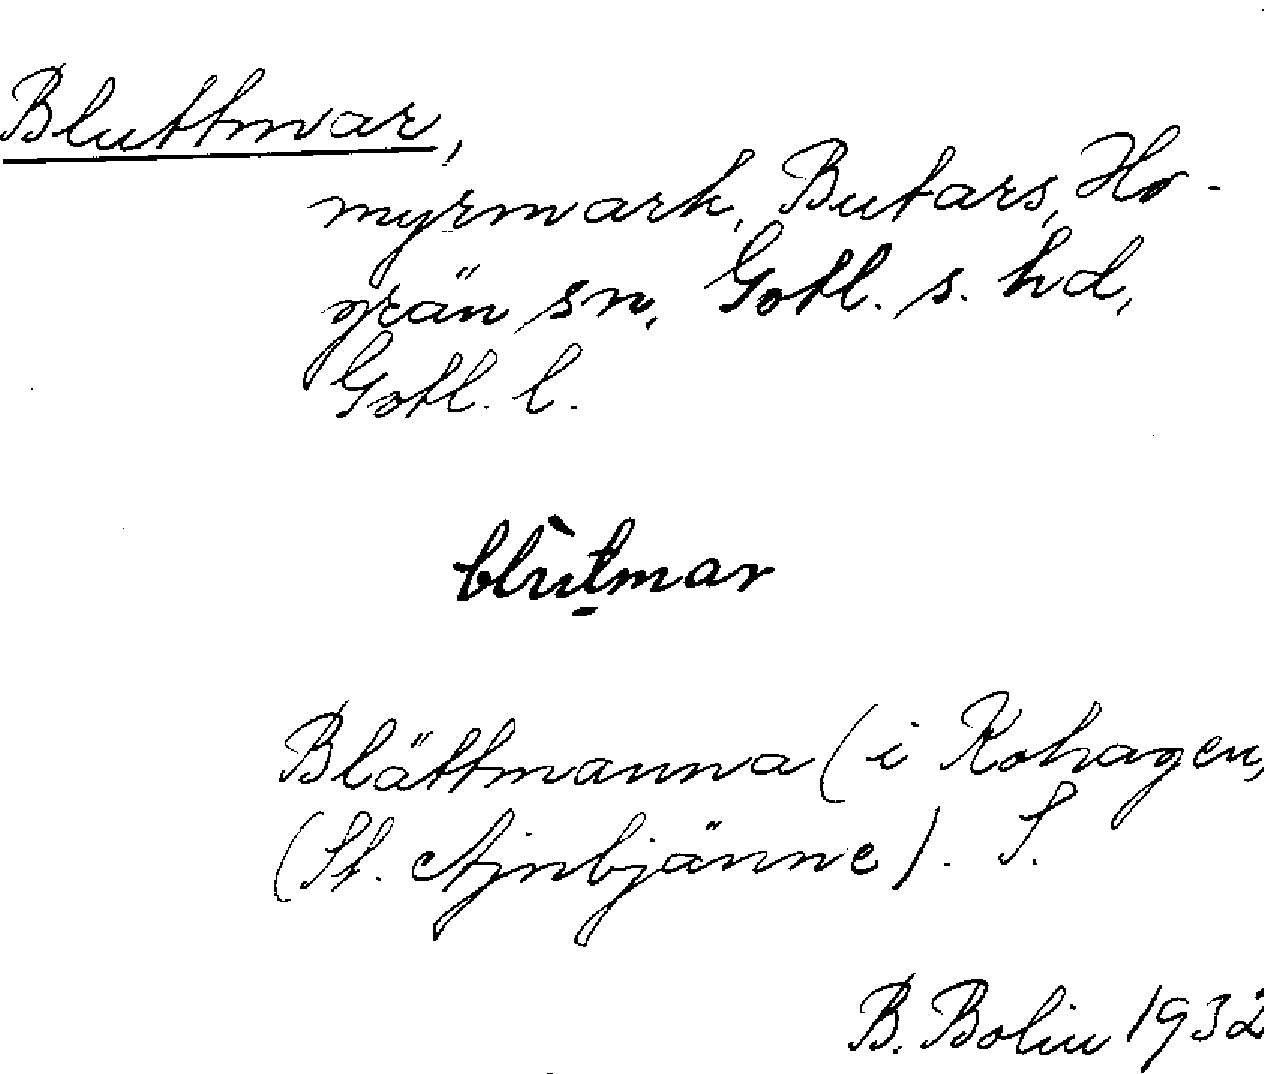 Bluttmar,
myrmark, Butars, Ho-
grän sn, Gotl. s. hd,
Gotl. l.
blùt̠mar
Blättmanna (i Kohagen,
(St. Ajnbjänne). S.
B. Bolin 1932